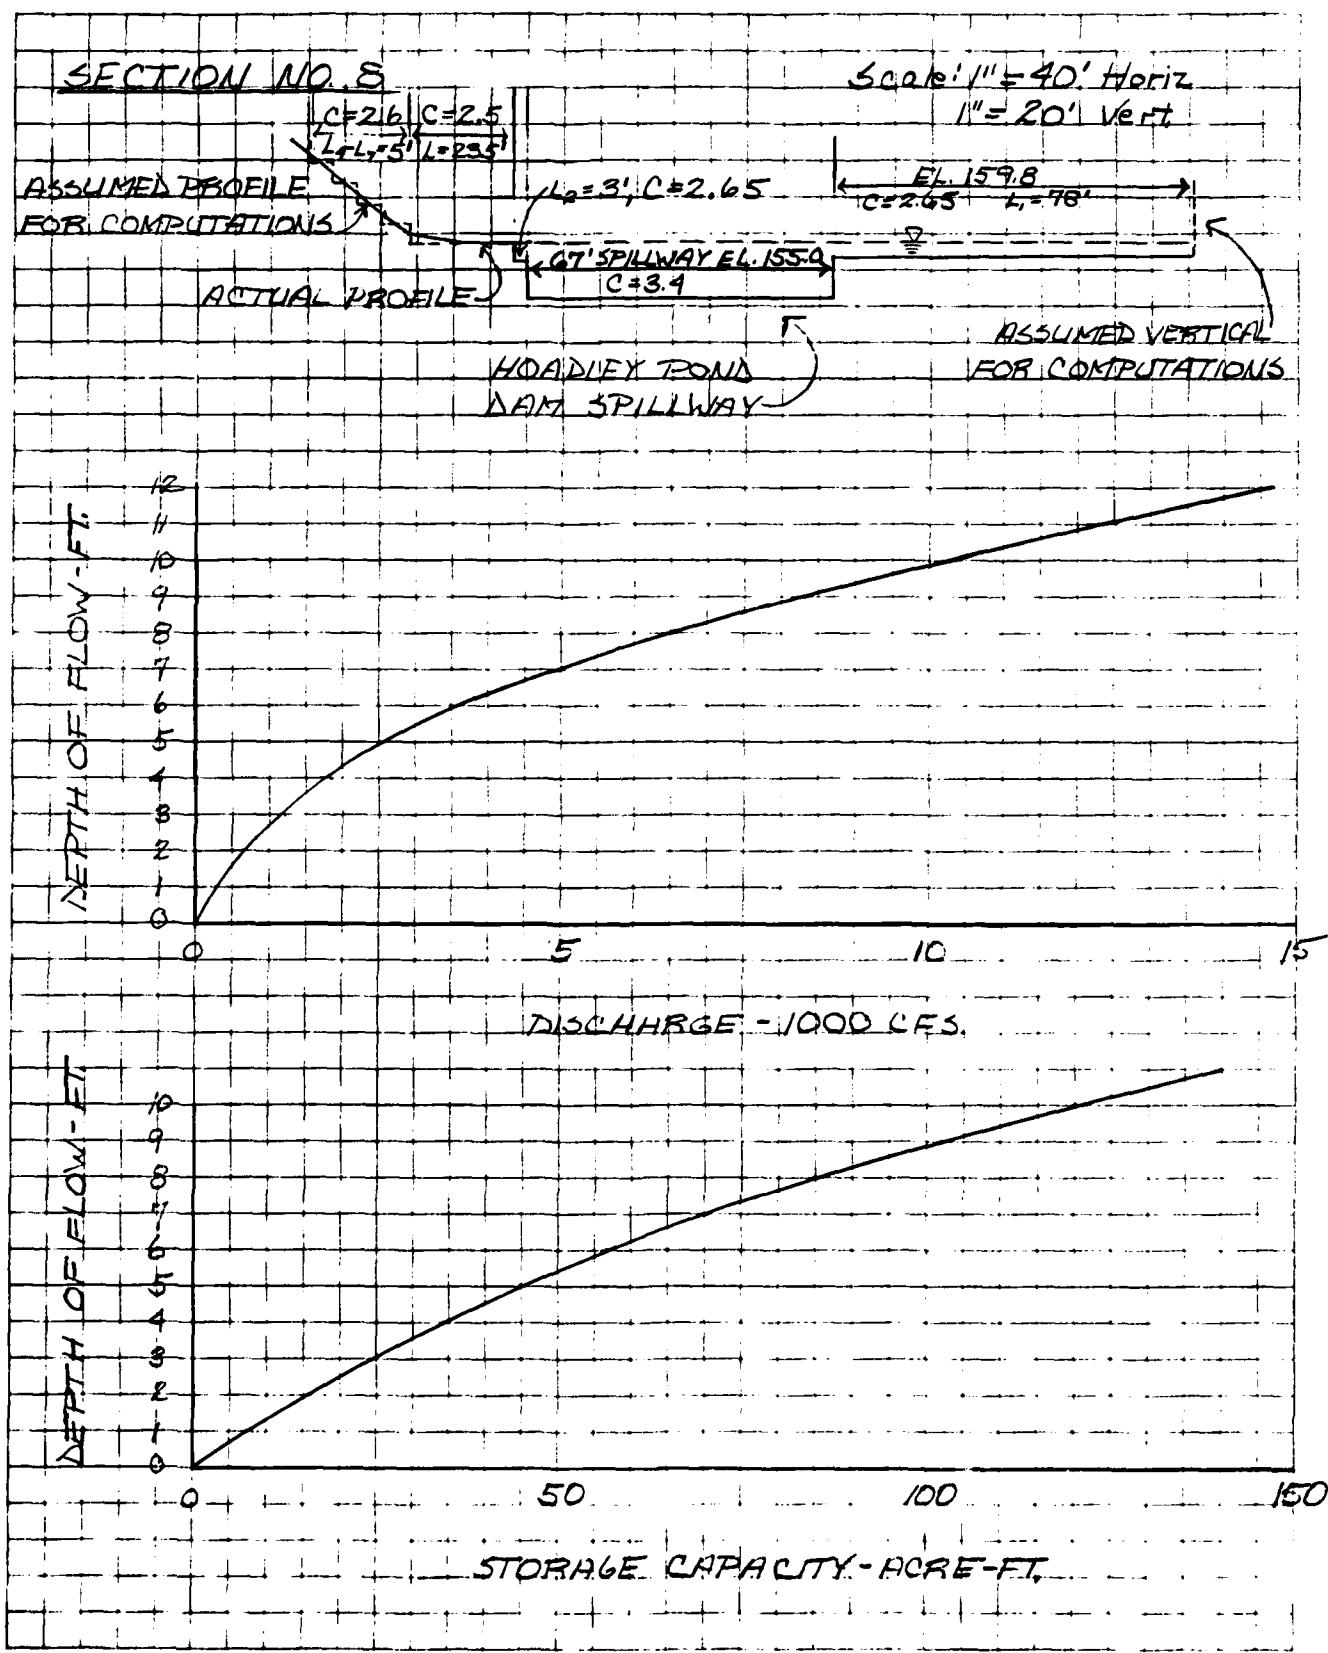 SECTION NO. 8
Scale: 1" = 40' Horiz
1" = 20' Vert
C=2.6
C=2.5
L=235'
ASSUMED PROFILE
FOR COMPUTATIONS
L₂=3', C=2.65
EL. 159.8
C=2.65 L₁=78'
67' SPILLWAY EL. 155.0
C=3.4
ACTUAL PROFILE
ASSUMED VERTICAL
FOR COMPUTATIONS
HOADLEY POND
DAM SPILLWAY
DEPTH OF FLOW - FT.
12
11
10
9
8
7
6
5
4
3
2
1
0
0 5 10 15
DISCHARGE - 1000 CFS.
DEPTH OF FLOW - FT.
10
9
8
7
6
5
4
3
2
1
0
0 50 100 150
STORAGE CAPACITY - ACRE-FT.